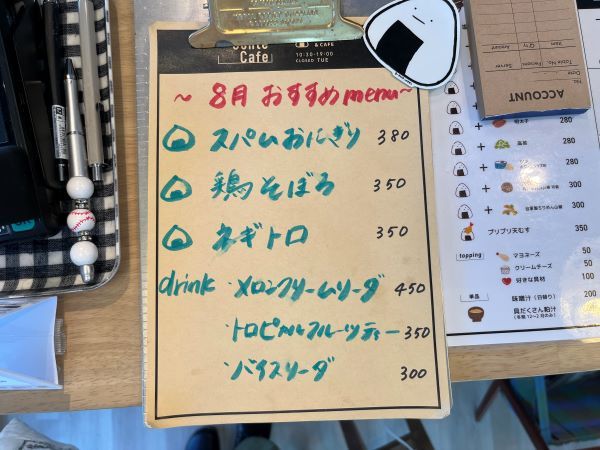 Cafe
& CAFE
10:30-19:00
CLOSED TUE
~ 8月 おすすめ menu ~
スパムおにぎり 380
鶏そぼろ 350
ネギトロ 350
drink ・メロンクリームソーダ 450
・トロピカルフルーツティー 350
・バイスソーダ 300
ACCOUNT
No.
Date
Table No.
Persons
Server
Item
Q'ty
Amount
+ 明太子 280
+ 高菜 280
+ 280
+ 300
+ 300
プリプリ天むす 350
topping
マヨネーズ 50
クリームチーズ 50
好きな具材 100
単品
味噌汁(日替り) 200
具だくさん粕汁
(冬期 12~2月のみ)